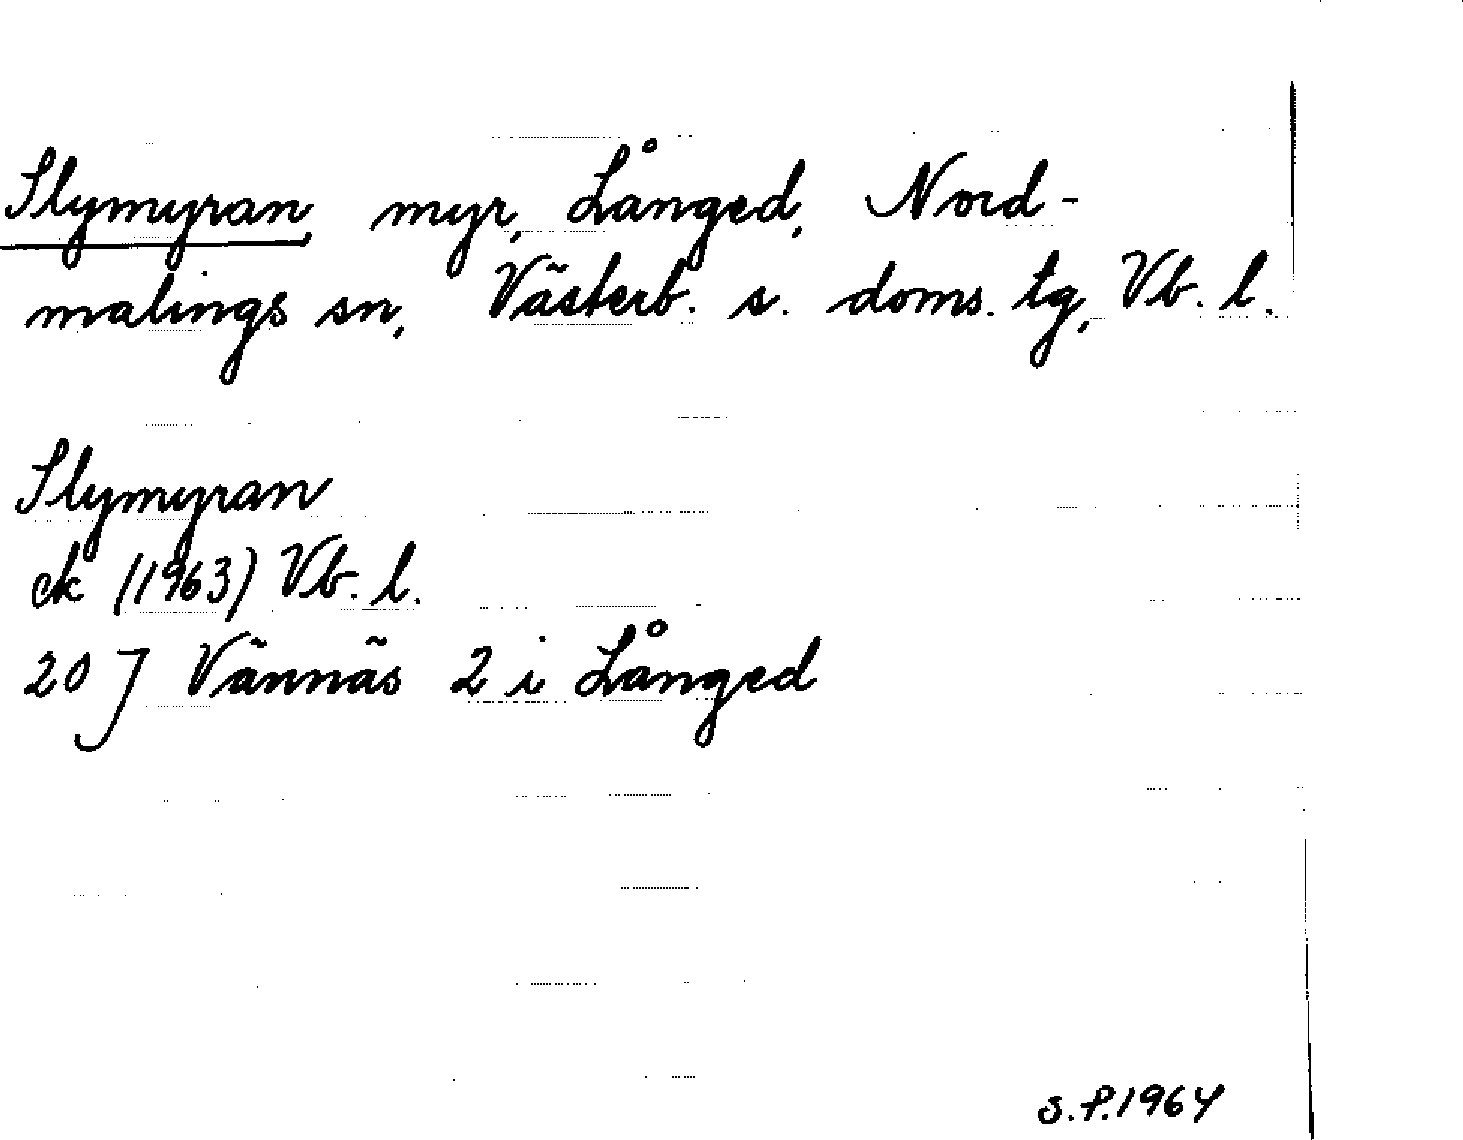 Slymyran, myr, Långed, Nord-
malings sn, Västerb. s. doms. tg, Vb. l.
Slymyran
ek (1963) Vb. l.
20 J Vännäs 2 i Långed
S.P.1964